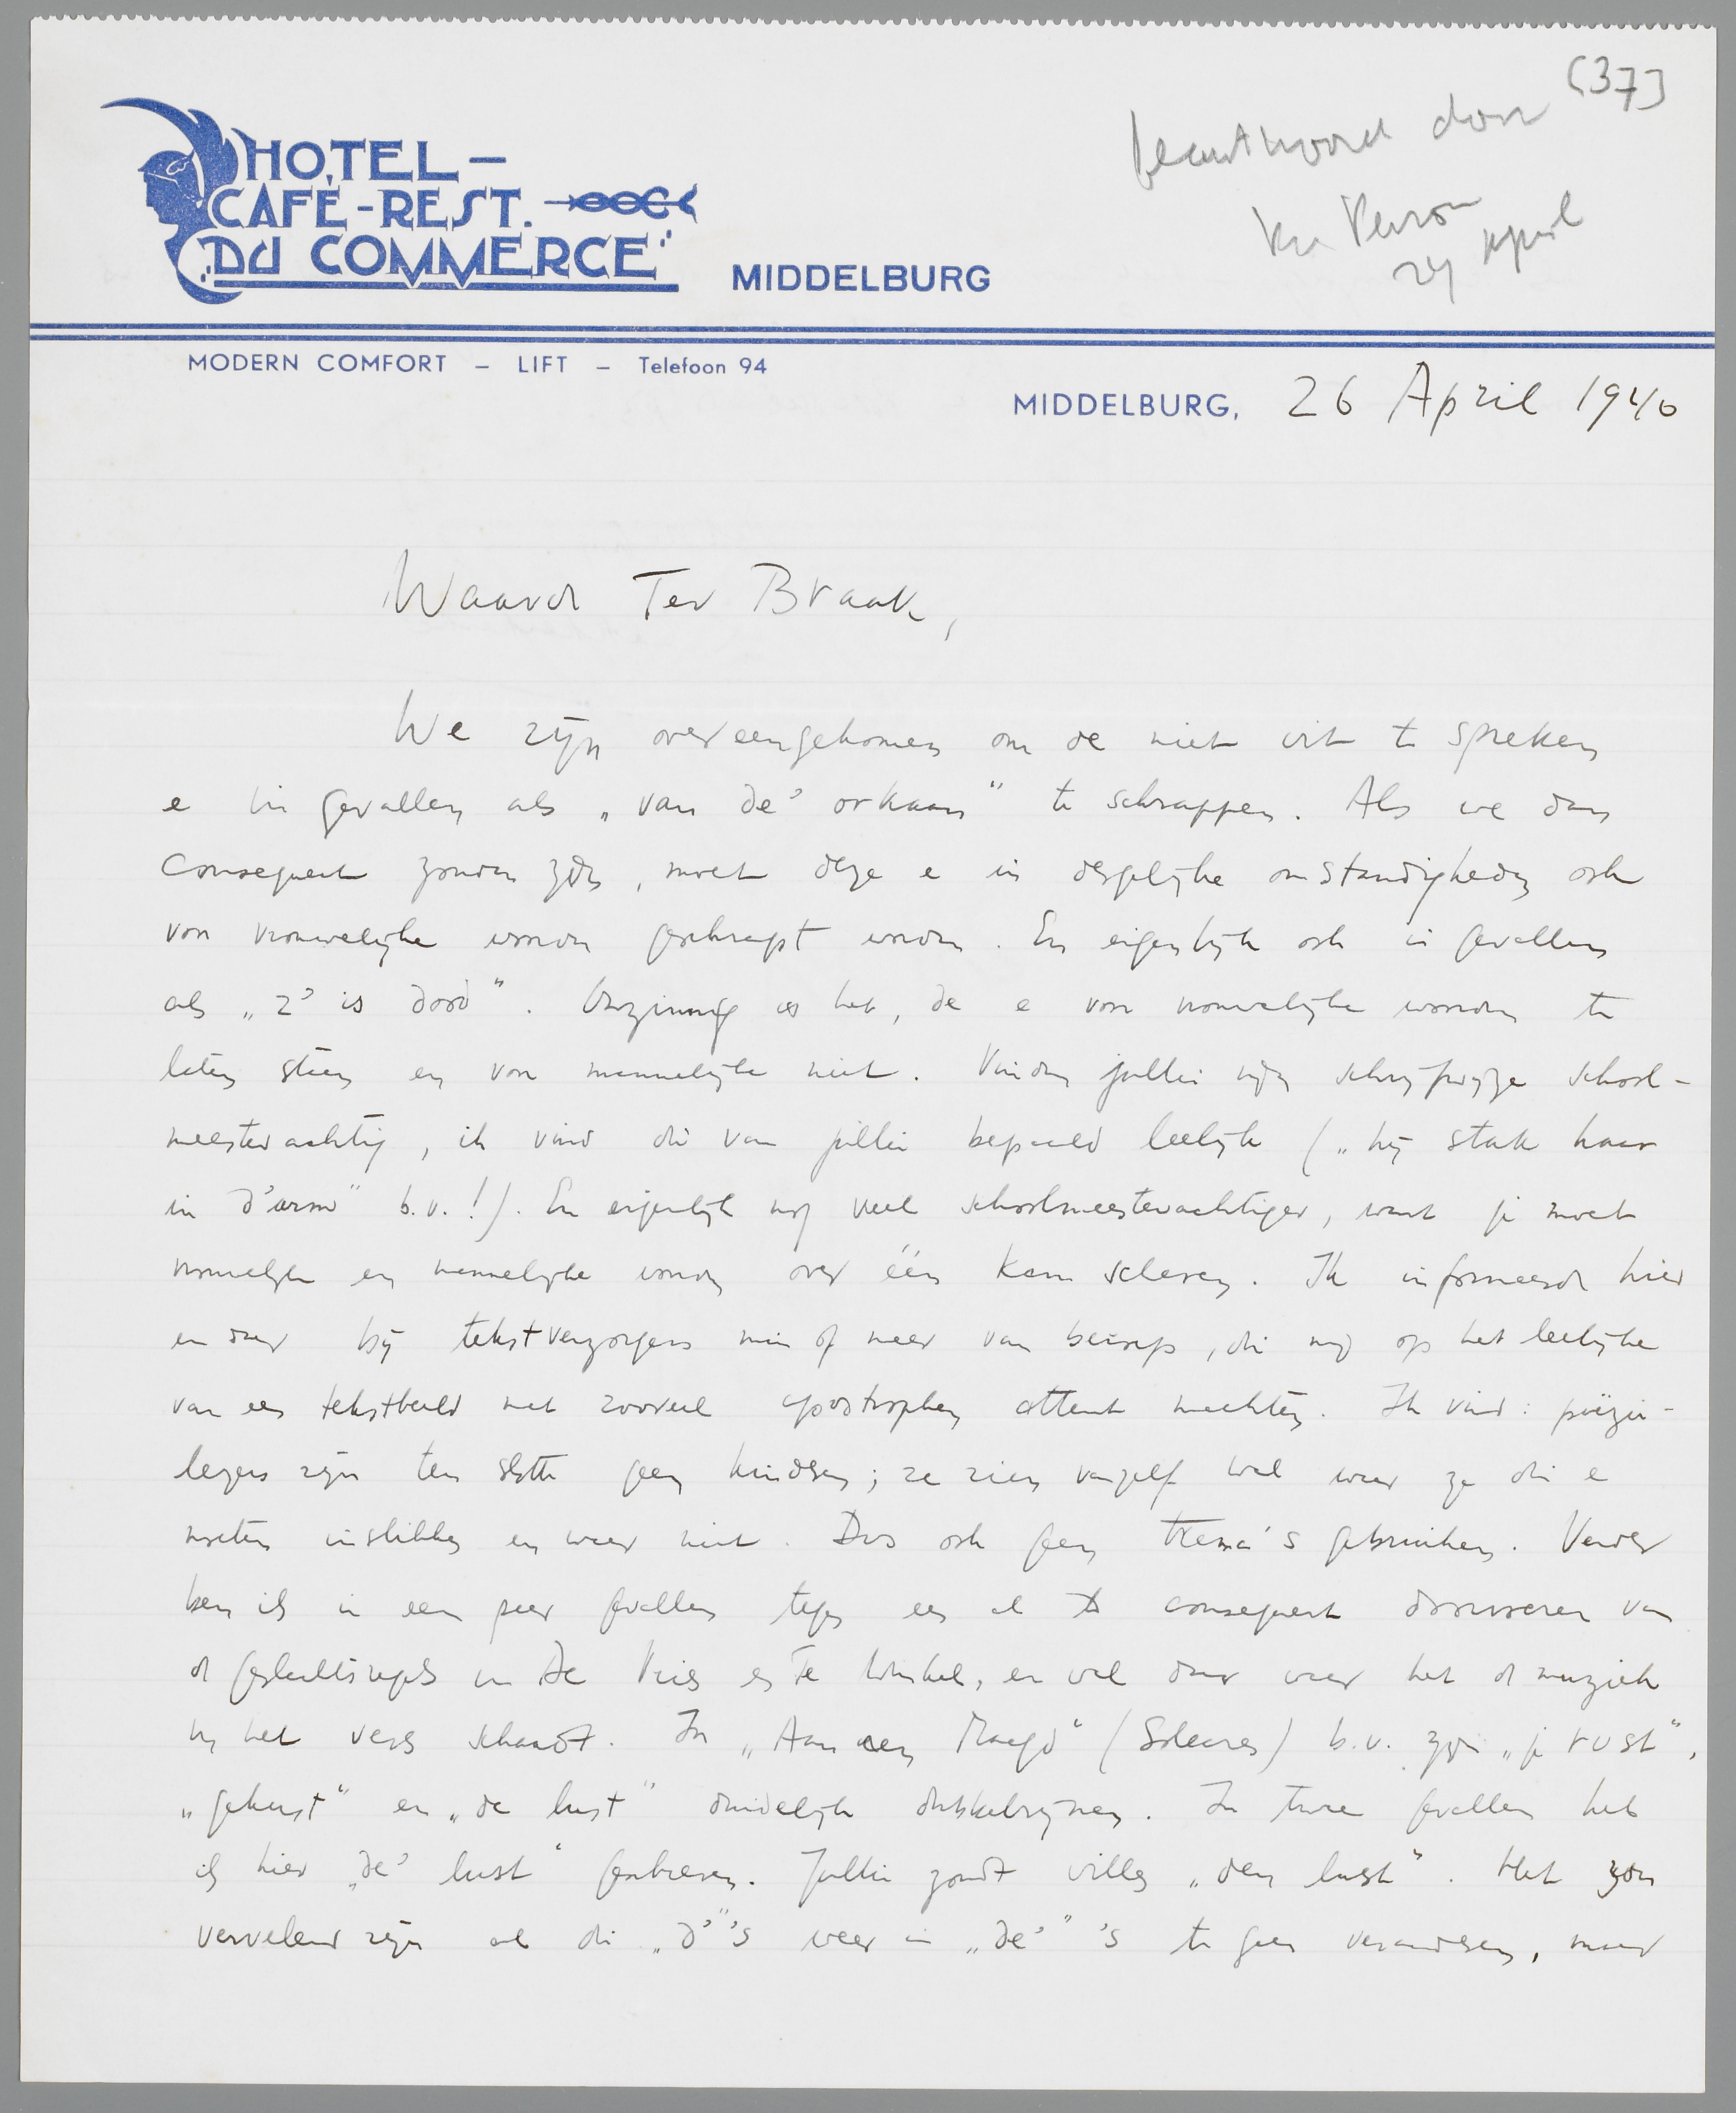 [37]
beantwoord door
v.
29 April
HOTEL –
CAFÉ-REST.
"DU COMMERCE"
MIDDELBURG
MODERN COMFORT – LIFT – Telefoon 94
MIDDELBURG, 26 April 1940
Waarde Ter Braak,
We zijn overeengekomen om de niet uit te spreken
e in gevallen als „van de' orkaan" te schrappen. Als we dan
consequent zouden zijn, moet deze e in dergelijke omstandigheden ook
voor vrouwelijke woorden geschrapt worden. En eigenlijk ook in gevallen
als „z' is dood". Onzinnig is het, de e voor vrouwelijke woorden te
laten staan en voor mannelijke niet. Vinden jullie mijn schrijfwijze school-
meesterachtig, ik vind die van jullie bepaald leelijk („hij stak haar
in d'arm" b.v.!). En eigenlijk nog veel schoolmeesterachtiger, want je moet
vrouwelijke en mannelijke woorden over één kam scheren. Ik informeerde hier
en daar bij tekstverzorgers min of meer van beroep, die mij op het leelijke
van een tekstbeeld met zooveel apostrophen attent maakten. Ik vind: poëzie-
lezers zijn ten slotte geen kinderen; ze zien vanzelf wel waar ze die e
moeten inslikken en waar niet. Dus ook geen trema's gebruiken. Verder
ben ik in een paar gevallen tegen een al te consequent doorvoeren van
de geslachtsregels van De Vries en Te Winkel, en wel daar waar het de muziek
van het vers schaadt. In „Aan een Maagd" (Soleares) b.v. zijn „je rust",
„gekust" en „de lust" duidelijk dubbelrijmen. In twee gevallen heb
ik hier „de' lust" geschreven. Jullie zoudt willen „den lust". Het zou
vervelend zijn al die „d'"'s weer in „de'"'s te gaan veranderen, maar